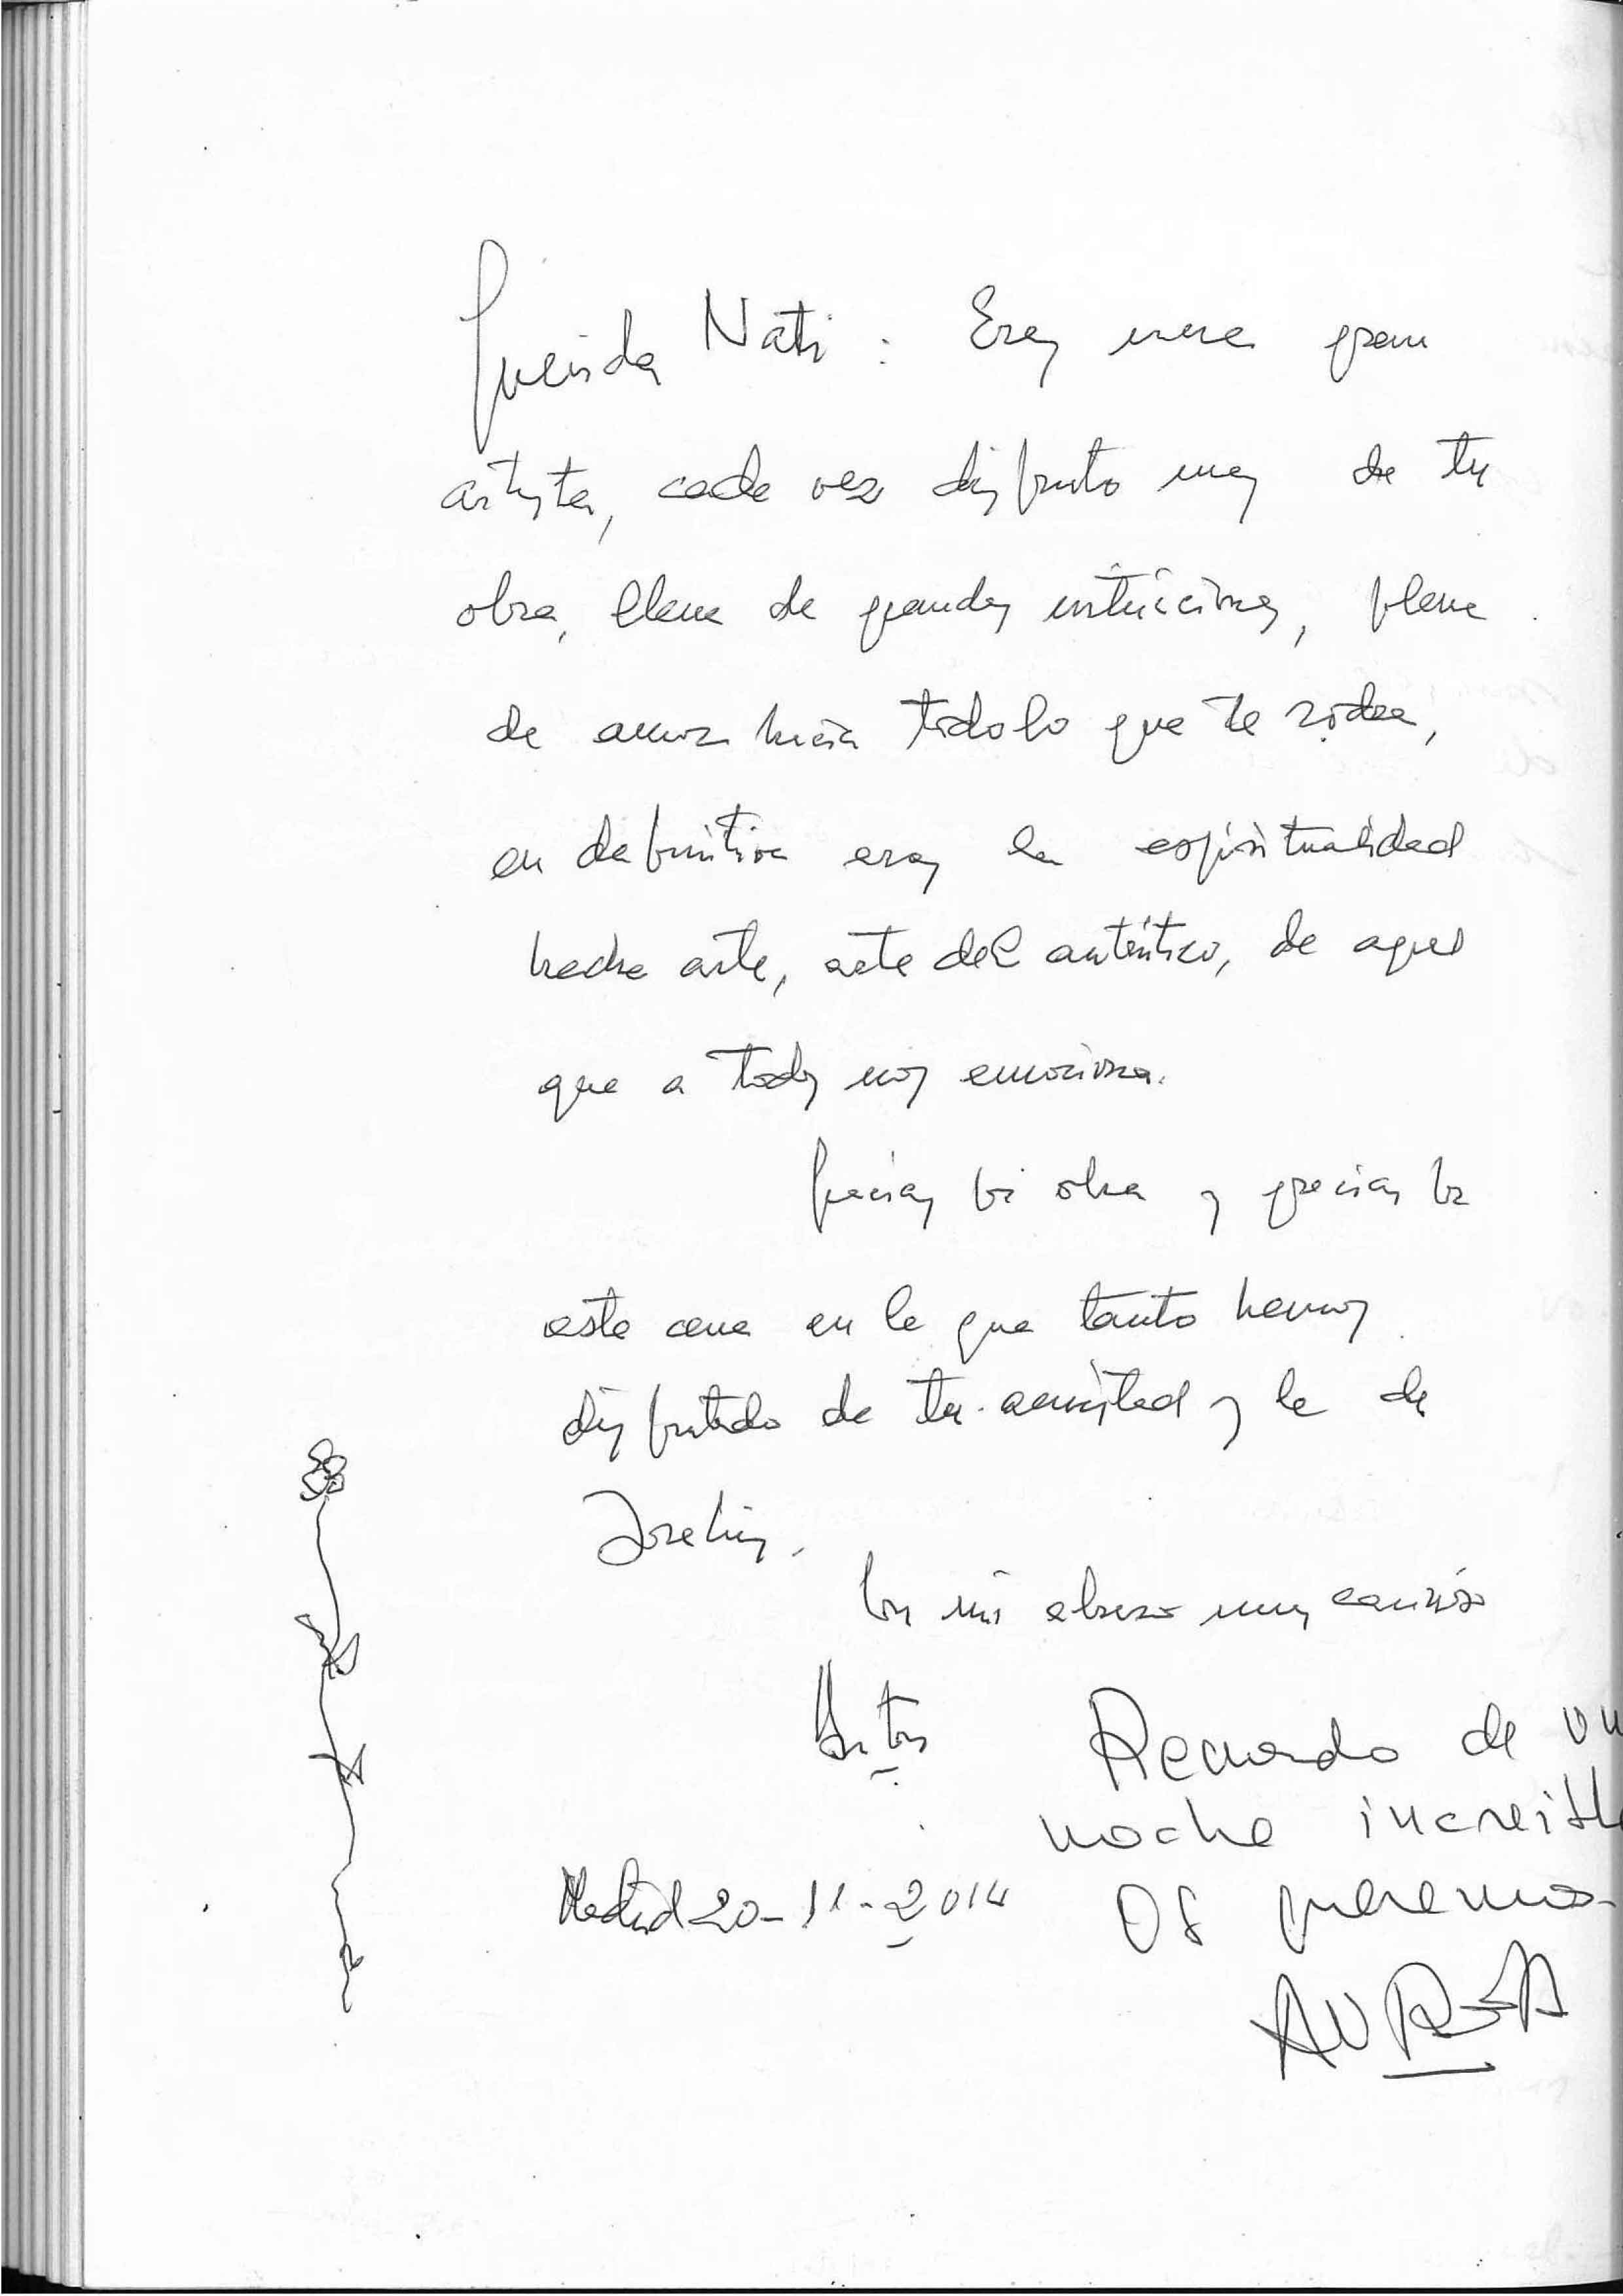 Querida Nati: Eres una gran
artista, cada vez disfruto mas de tu
obra, llena de grandes intuiciones, plena
de amor hacia todo lo que te rodea,
en definitiva eres la espiritualidad
hecha arte, arte del autentico, de aquel
que a todos nos emociona.
Gracias por obra y gracias por
esta cena en la que tanto hemos
disfrutado de tu amistad y la de
Con mi abrazo muy cariñoso
Recuerdo de un
noche increible
Madrid 20-11-2014
Os queremos
AURORA